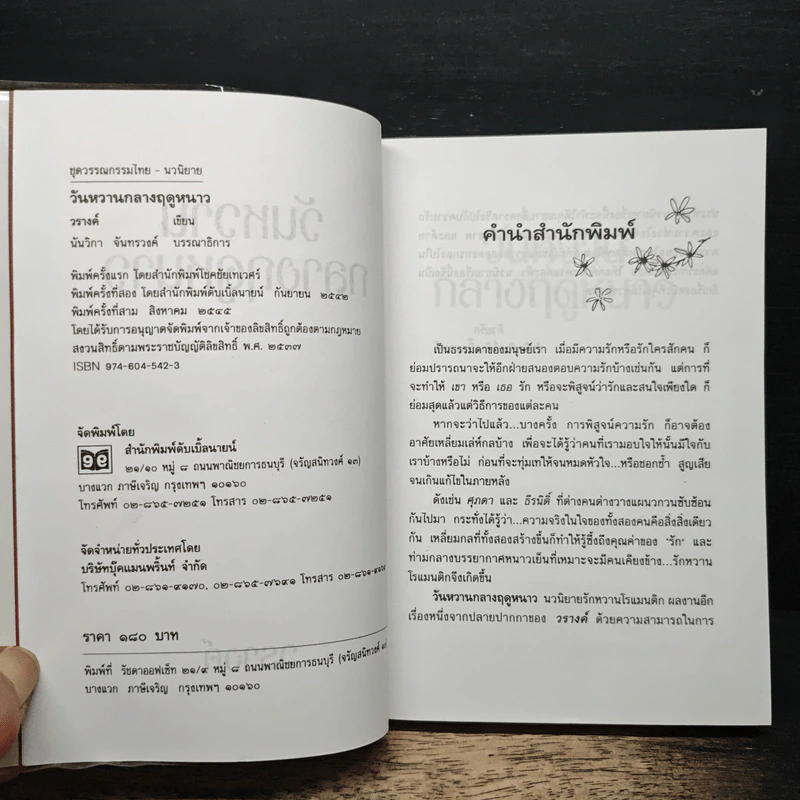 ชุดวรรณกรรมไทย - นวนิยาย
วันหวานกลางฤดูหนาว
วรางค์ เขียน
นันวิกา จันทรวงค์ บรรณาธิการ
พิมพ์ครั้งแรก โดยสำนักพิมพ์โชคชัยเทเวศร์
พิมพ์ครั้งที่สอง โดยสำนักพิมพ์ดับเบิ้ลนายน์ กันยายน ๒๕๔๒
พิมพ์ครั้งที่สาม สิงหาคม ๒๕๔๕
โดยได้รับการอนุญาตจัดพิมพ์จากเจ้าของลิขสิทธิ์ถูกต้องตามกฎหมาย
สงวนสิทธิ์ตามพระราชบัญญัติลิขสิทธิ์ พ.ศ. ๒๕๓๗
ISBN 974-604-542-3
จัดพิมพ์โดย
สำนักพิมพ์ดับเบิ้ลนายน์
๒๑/๑๐ หมู่ ๘ ถนนพาณิชยการธนบุรี (จรัญสนิทวงศ์ ๑๓)
บางแวก ภาษีเจริญ กรุงเทพฯ ๑๐๑๖๐
โทรศัพท์ ๐๒-๘๖๕-๗๒๕๑ โทรสาร ๐๒-๘๖๕-๗๒๕๑
จัดจำหน่ายทั่วประเทศโดย
บริษัทบุ๊คแมนพริ้นท์ จำกัด
โทรศัพท์ ๐๒-๘๖๑-๙๑๗๐, ๐๒-๘๖๕-๗๖๙๑ โทรสาร
ราคา ๑๘๐ บาท
พิมพ์ที่ รัชดาออฟเซ็ท ๒๑/๙ หมู่ ๘ ถนนพาณิชยการธนบุรี (จรัญสนิทวงศ์
บางแวก ภาษีเจริญ กรุงเทพฯ ๑๐๑๖๐
คำนำสำนักพิมพ์
เป็นธรรมดาของมนุษย์เรา เมื่อมีความรักหรือรักใครสักคน ก็
ย่อมปรารถนาจะให้อีกฝ่ายสนองตอบความรักบ้างเช่นกัน แต่การที่
จะทำให้ เขา หรือ เธอ รัก หรือจะพิสูจน์ว่ารักและสนใจเพียงใด ก็
ย่อมสุดแล้วแต่วิธีการของแต่ละคน
หากจะว่าไปแล้ว...บางครั้ง การพิสูจน์ความรัก ก็อาจต้อง
อาศัยเหลี่ยมเล่ห์กลบ้าง เพื่อจะได้รู้ว่าคนที่เรามอบใจให้นั้นมีใจกับ
เราบ้างหรือไม่ ก่อนที่จะทุ่มเทให้จนหมดหัวใจ...หรือชอกช้ำ สูญเสีย
จนเกินแก้ไขในภายหลัง
ดังเช่น ศุภดา และ ธีรนิติ์ ที่ต่างคนต่างวางแผนวกวนซับซ้อน
กันไปมา กระทั่งได้รู้ว่า...ความจริงในใจของทั้งสองคนคือสิ่งสิ่งเดียว
กัน เหลี่ยมกลที่ทั้งสองสร้างขึ้นก็ทำให้รู้ซึ้งถึงคุณค่าของ "รัก" และ
ท่ามกลางบรรยากาศหนาวเย็นที่เหมาะจะมีคนเคียงข้าง...รักหวาน
โรแมนติกจึงเกิดขึ้น
วันหวานกลางฤดูหนาว นวนิยายรักหวานโรแมนติก ผลงานอีก
เรื่องหนึ่งจากปลายปากกาของ วรางค์ ด้วยความสามารถในการ